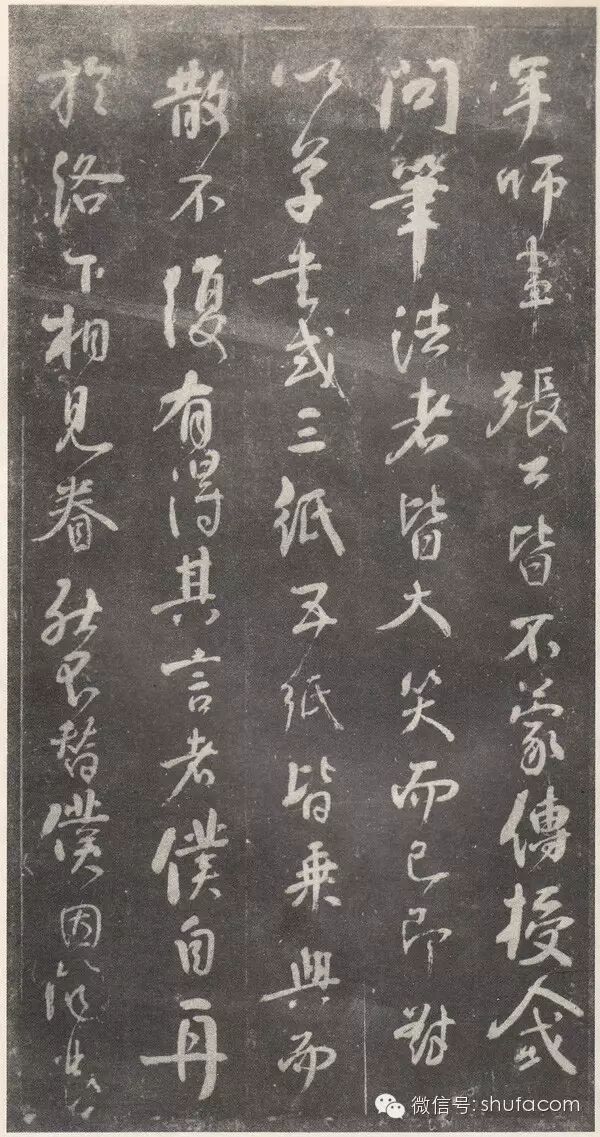 年師事張公皆不蒙傳授人或
問筆法者皆大笑而已即對
以草書或三紙五紙皆乘興而
散不復有得其言者僕自再
於洛下相見眷然替僕因
微信号: shufacom